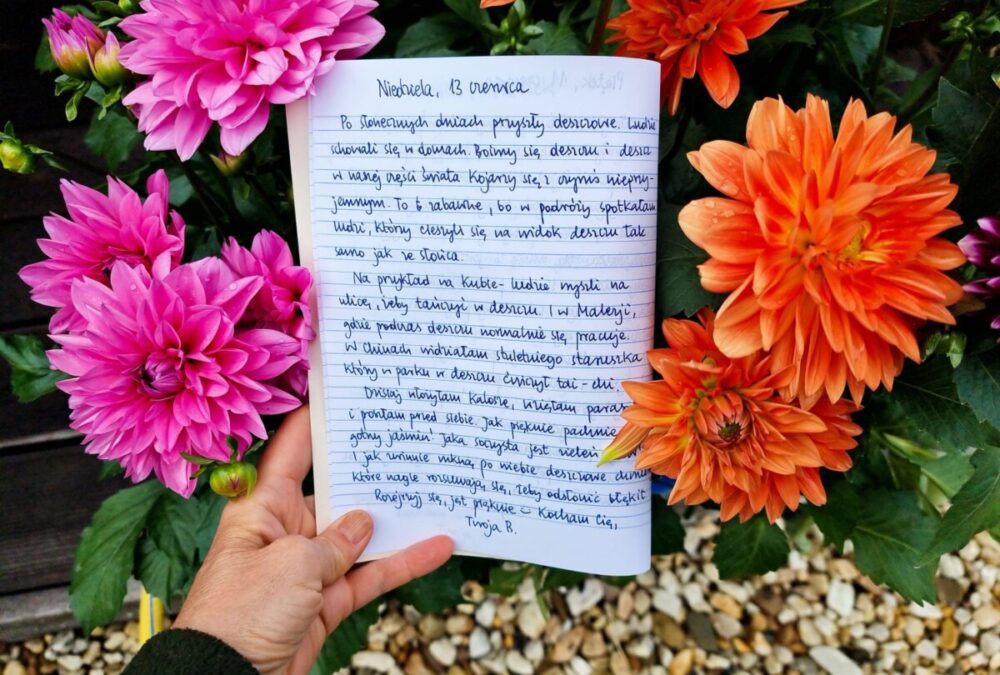 Niedziela, 13 czerwca
Po słonecznych dniach przyszły deszczowe. Ludzie
schowali się w domach. Boimy się deszczu i deszcz
w naszej części świata kojarzy się z czymś nieprzy-
jemnym. To zabawne, bo w podróży spotkałam
ludzi, którzy cieszyli się na widok deszczu tak
samo jak ze słońca.
Na przykład na Kubie - ludzie wyszli na
ulicę, żeby tańczyć w deszczu. I w Malezji,
gdzie podczas deszczu normalnie się pracuje.
W Chinach widziałam stuletniego staruszka
który w parku w deszczu ćwiczył tai-chi.
Dzisiaj włożyłam kalosze, wzięłam paras
i poszłam przed siebie. Jak pięknie pachnie
jaśmin! Jaka soczysta jest zieleń
I jak zwinnie mkną po niebie deszczowe
które nagle rozsuwają się, żeby odsłonić błękit
Rozejrzyj się, jest pięknie Kocham Cię,
Twoja B.